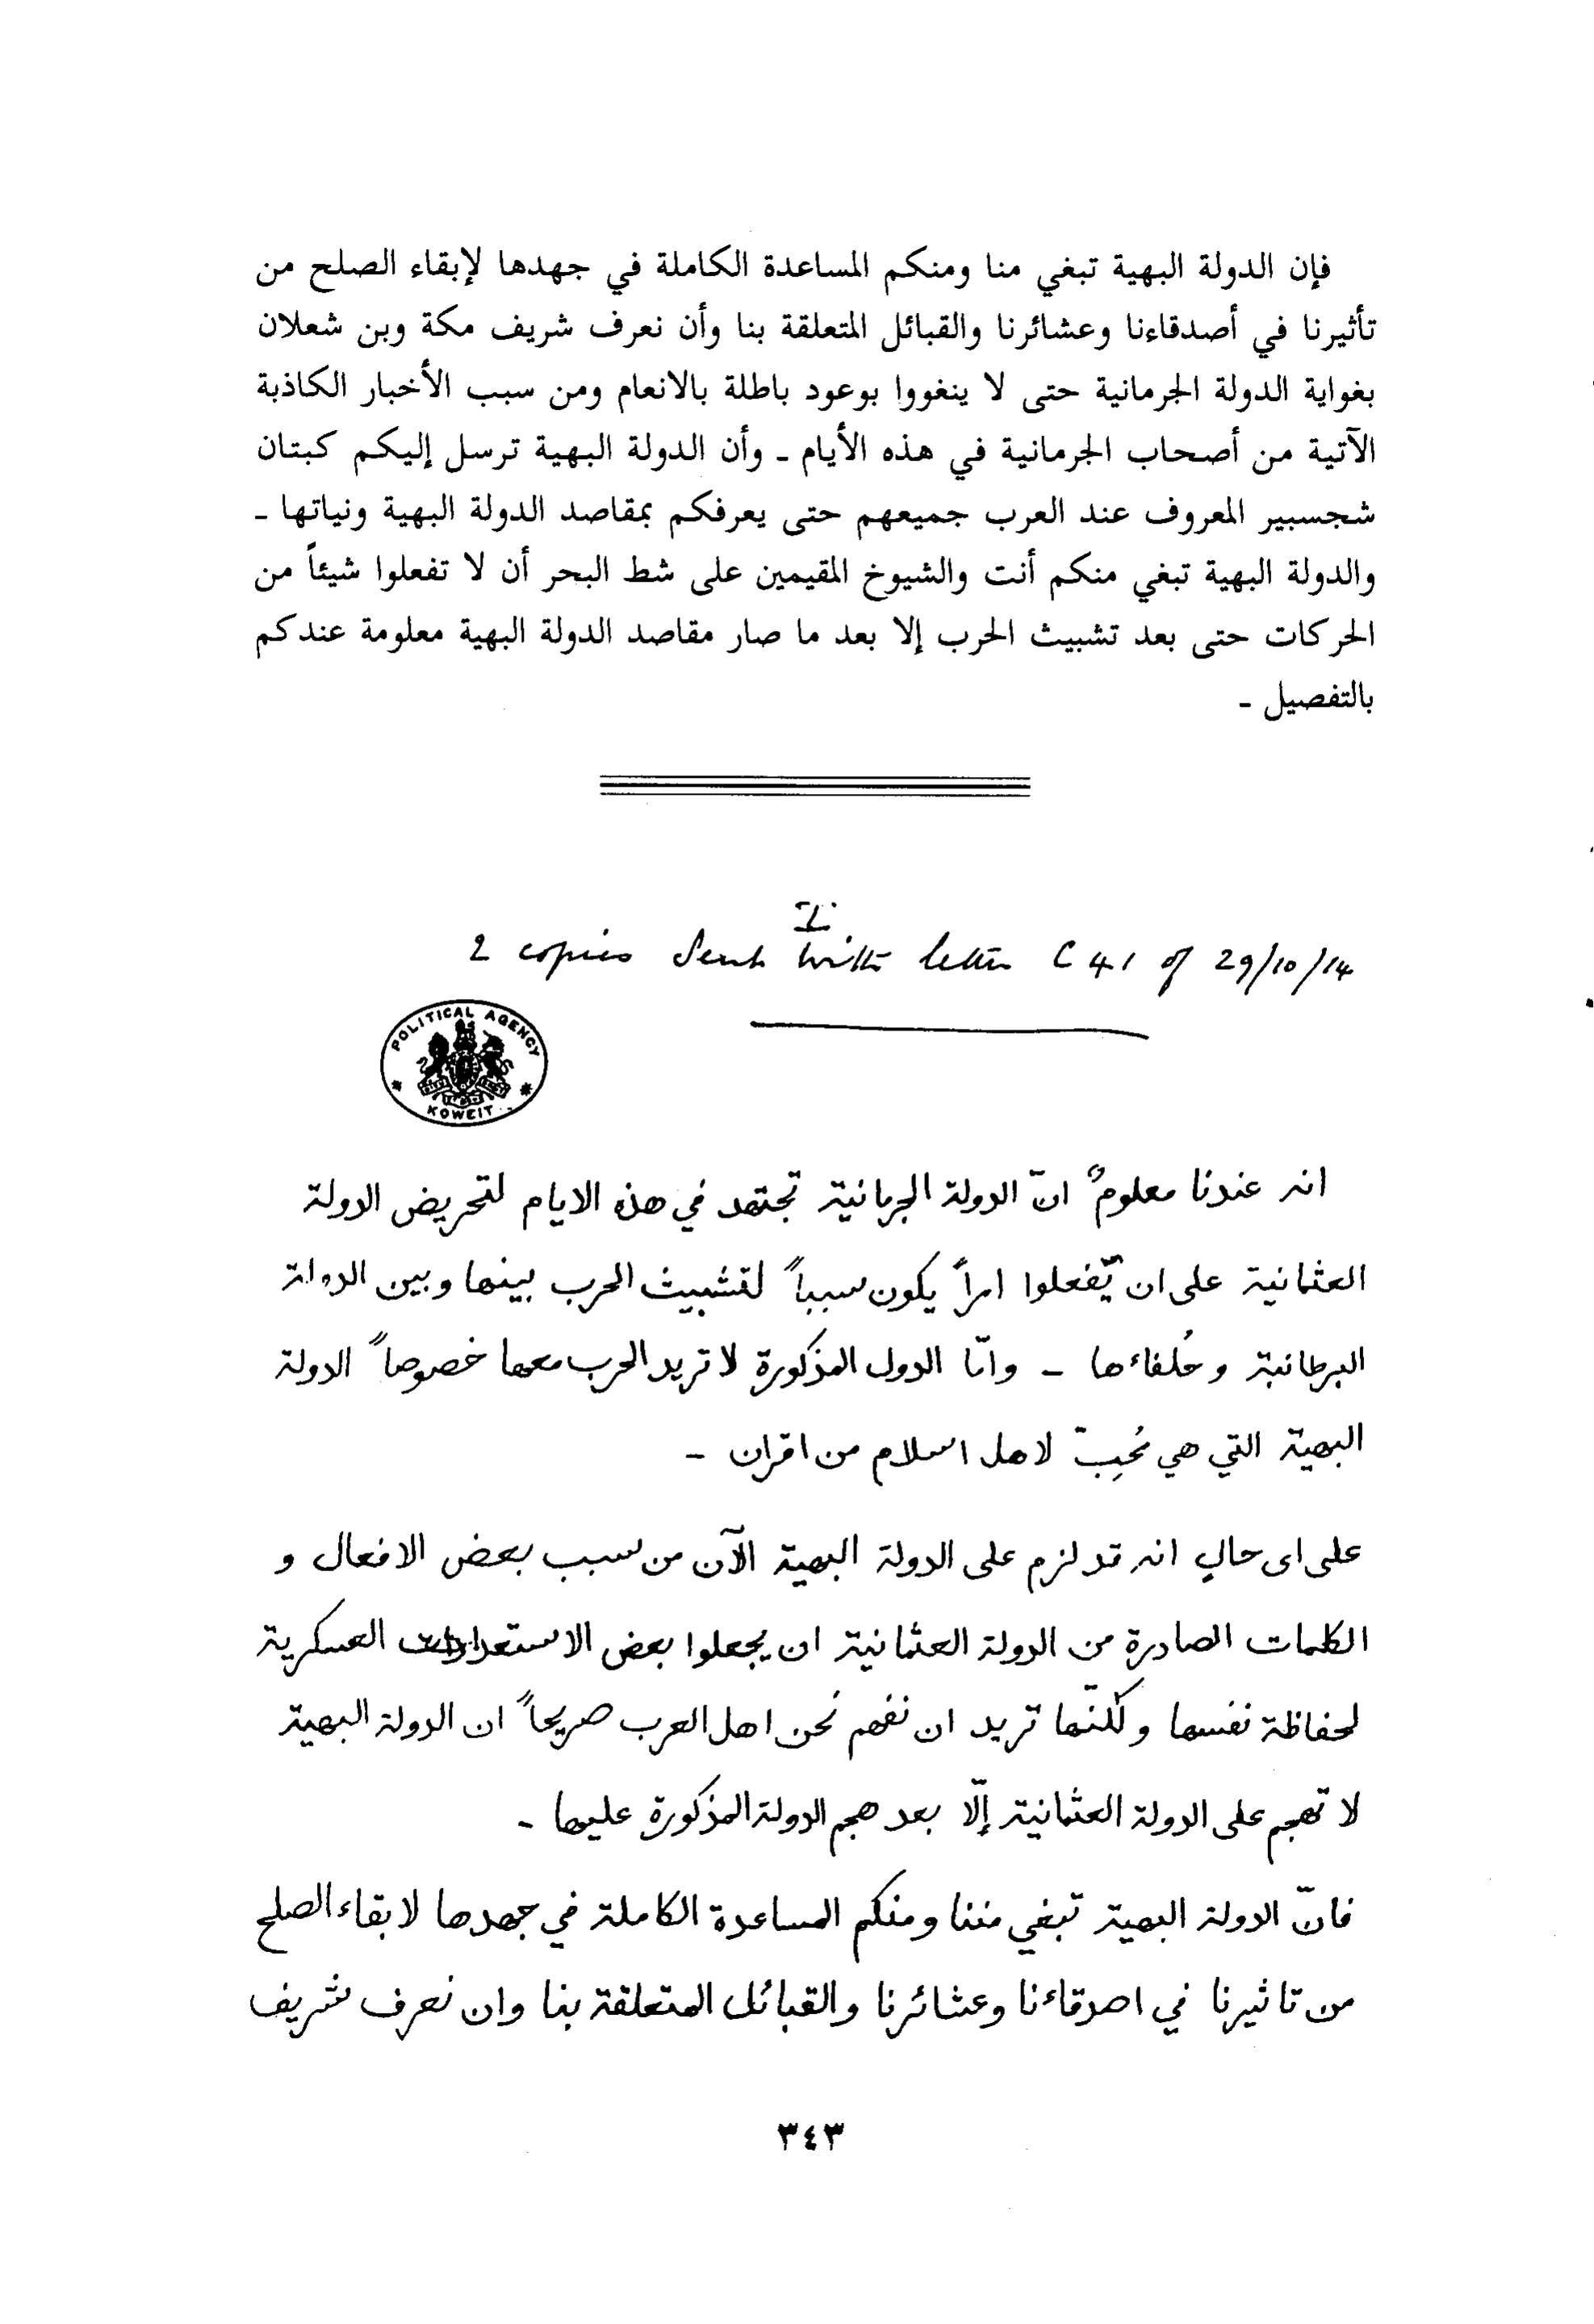 فإن الدولة البهية تبغي منا ومنكم المساعدة الكاملة في جهدها لإبقاء الصلح من
تأثيرنا في أصدقاءنا وعشائرنا والقبائل المتعلقة بنا وأن نعرف شريف مكة وبن شعلان
بغواية الدولة الجرمانية حتى لا ينغووا بوعود باطلة بالانعام ومن سبب الأخبار الكاذبة
الآتية من أصحاب الجرمانية في هذه الأيام ـ وأن الدولة البهية ترسل إليكم كبتان
شجسبير المعروف عند العرب جميعهم حتى يعرفكم بمقاصد الدولة البهية ونياتها ـ
والدولة البهية تبغي منكم أنت والشيوخ المقيمين على شط البحر أن لا تفعلوا شيئاً من
الحركات حتى بعد تشبيث الحرب إلا بعد ما صار مقاصد الدولة البهية معلومة عندكم
بالتفصيل ـ
I
2 copies sent with letter C 41 of 29/10/14
POLITICAL AGENCY
KOWEIT
انه عندنا معلومٌ انّ الدولة الجرمانية تجتهد في هذه الايام لتحريض الدولة
العثمانية على ان يّفعلوا امراً يكون سبباً لتشبيث الحرب بينها وبين الدولة
البرطانية وحُلفاءها ـ وانّا الدول المذكورة لا تريد الحرب معها خصوصاً الدولة
البهية التي هي مُحِبّ لاهل اسلام من اقران ـ
على اى حالٍ انه قد لزم على الدولة البهية الآن من سبب بعض الافعال و
الكلمات الصادرة من الدولة العثمانية ان يجعلوا بعض الاستعدادات العسكرية
لحفاظة نفسها ولكنّها تريد ان نفهم نحن اهل العرب صريحاً ان الدولة البهية
لا تهجم على الدولة العثمانية إلّا بعد هجم الدولة المذكورة عليها ـ
فانّ الدولة البهية تبغي مننا ومنكم المساعدة الكاملة في جهدها لابقاء الصلح
من تاثيرنا في اصدقاءنا وعشائرنا والقبائل المتعلقة بنا وان نعرف شريف
٣٤٣